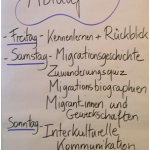 Ablauf
- Freitag - Kennenlernen + Rückblick
- Samstag - Migrationsgeschichte
Zuwanderungsquiz
Migrationsbiographien
Migrant.innen und
Gewerkschaften
Sonntag - Interkulturelle
Kommunikation